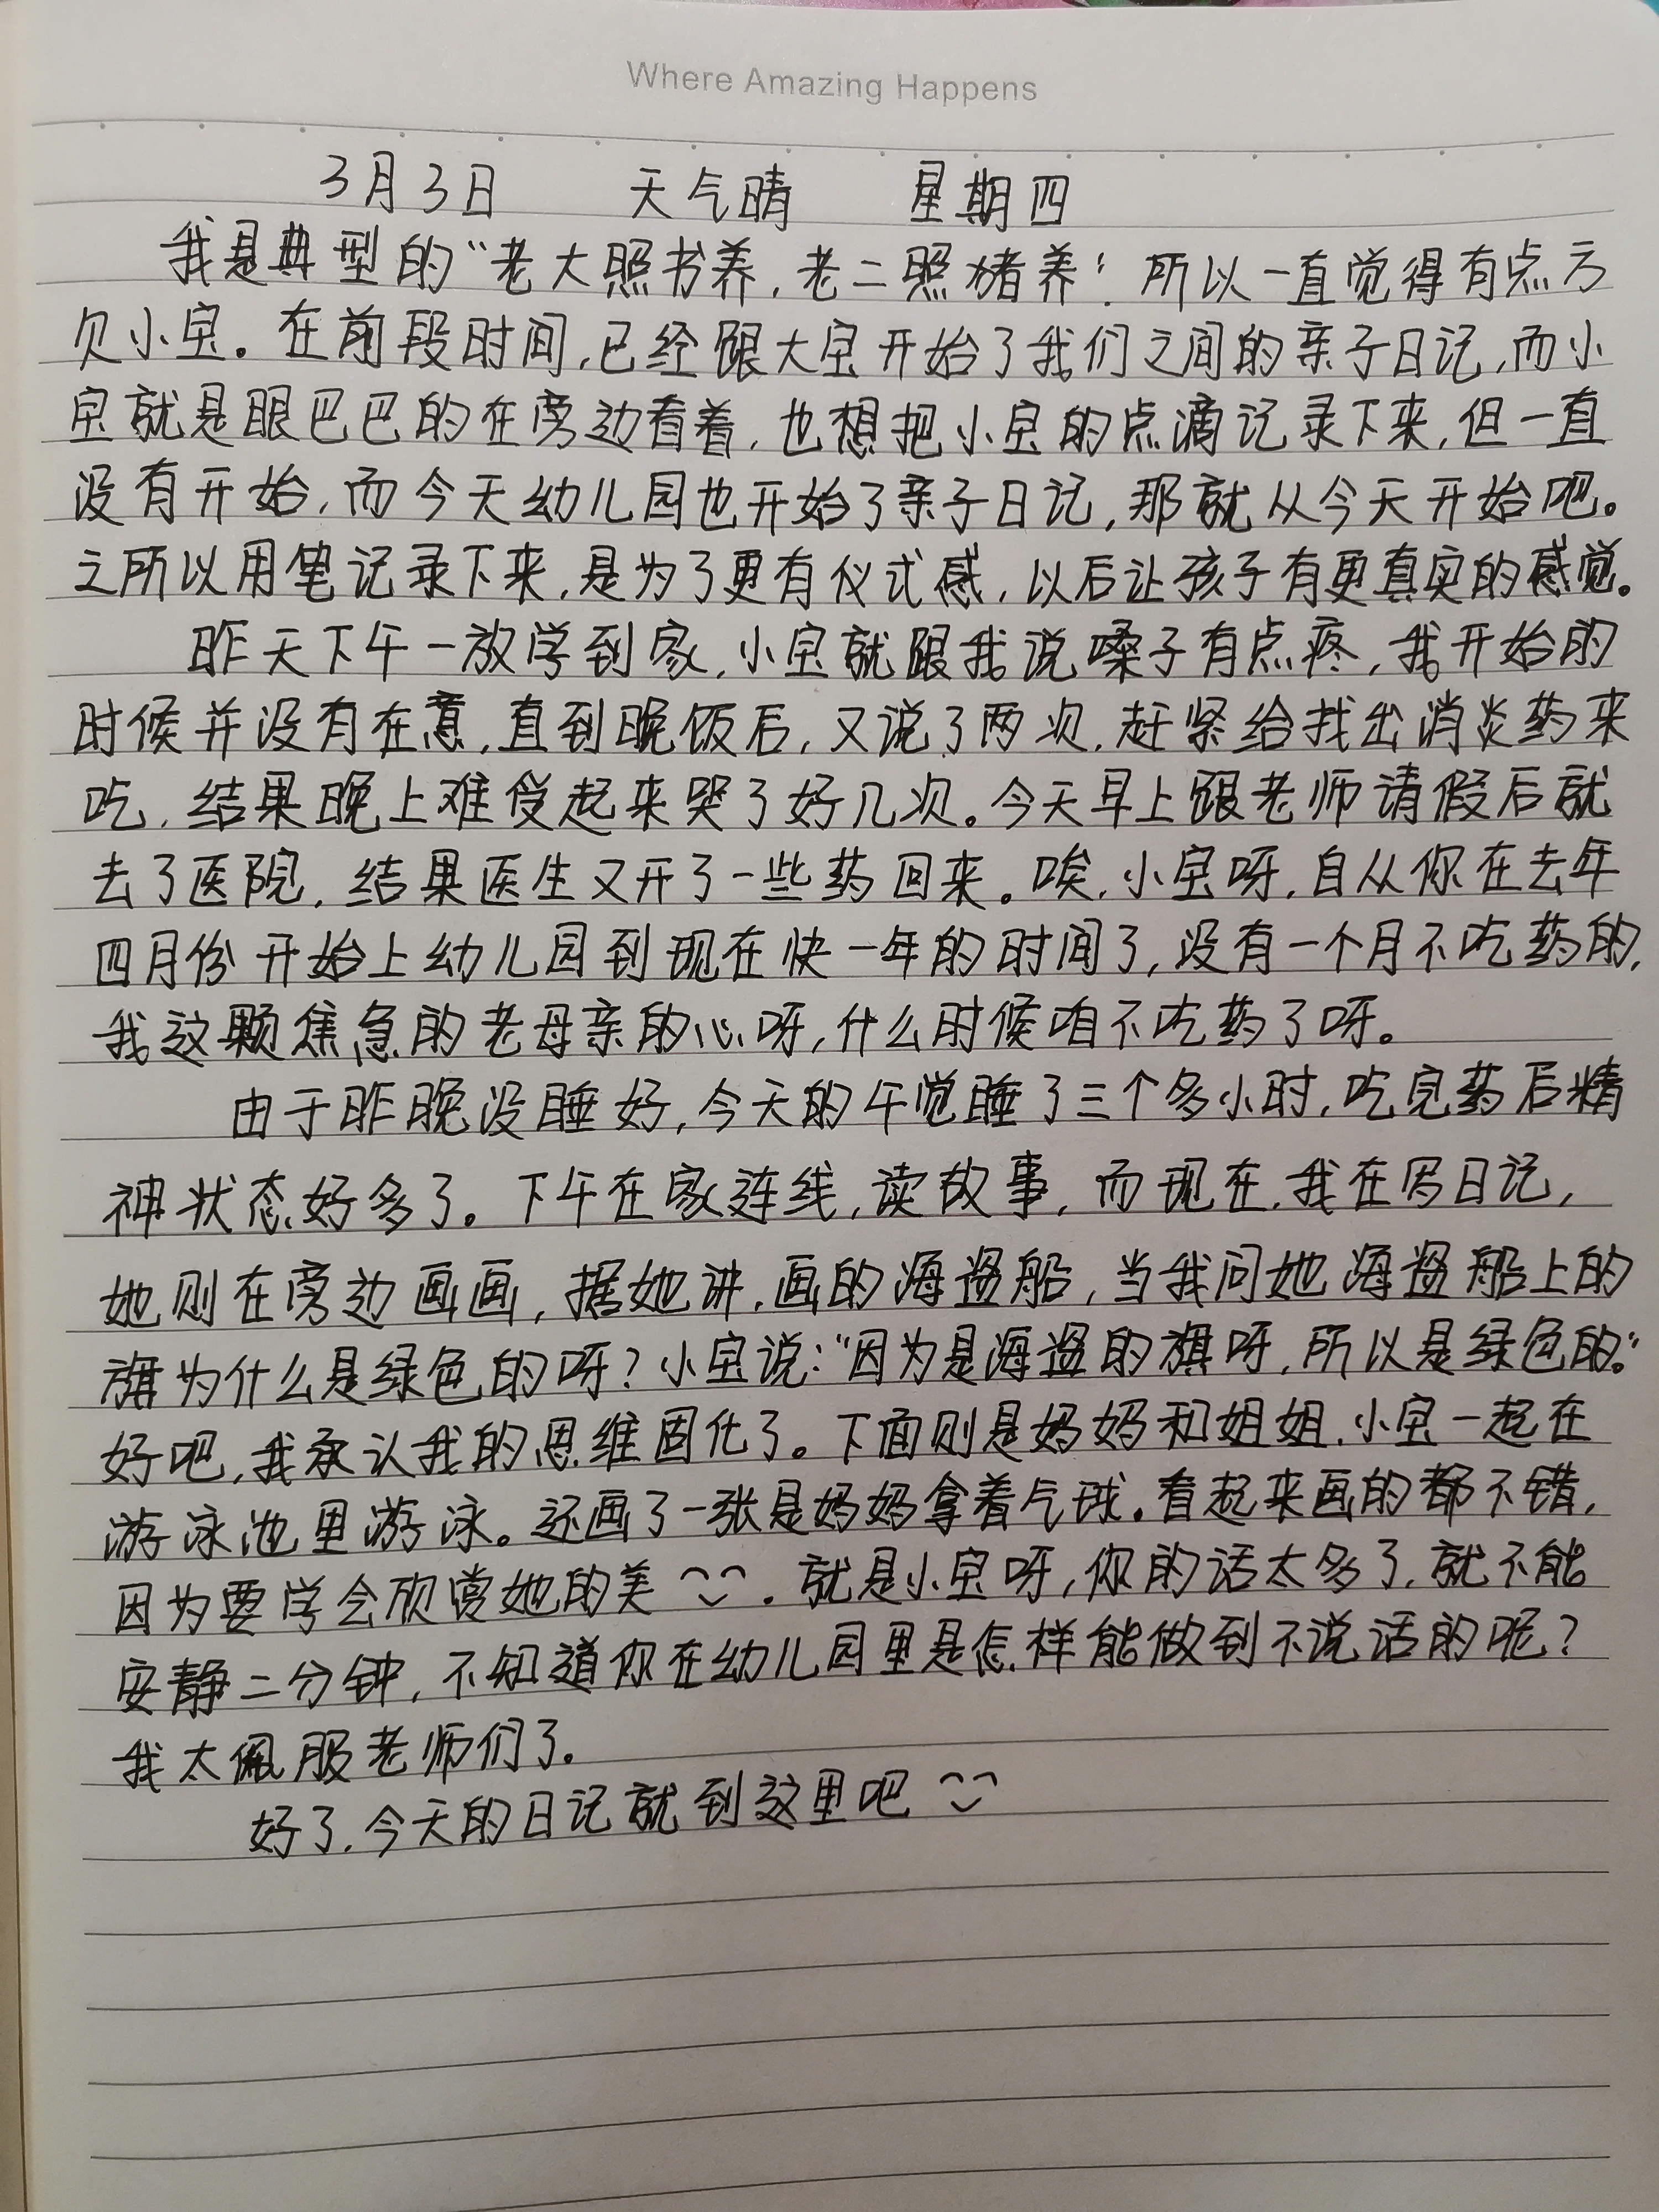 Where Amazing Happens
3月3日 天气晴 星期四
我是典型的“老大照书养,老二照猪养”。所以一直觉得有点亏
欠小宝。在前段时间,已经跟大宝开始了我们之间的亲子日记,而小
宝就是眼巴巴的在旁边看着,也想把小宝的点滴记录下来,但一直
没有开始,而今天幼儿园也开始了亲子日记,那就从今天开始吧。
之所以用笔记录下来,是为了更有仪式感,以后让孩子有更真实的感觉。
昨天下午一放学到家,小宝就跟我说嗓子有点疼,我开始的
时候并没有在意,直到晚饭后,又说了两次,赶紧给找出消炎药来
吃,结果晚上难受起来哭了好几次。今天早上跟老师请假后就
去了医院,结果医生又开了一些药回来。唉,小宝呀,自从你在去年
四月份开始上幼儿园到现在快一年的时间了,没有一个月不吃药的,
我这颗焦急的老母亲的心呀,什么时候咱不吃药了呀。
由于昨晚没睡好,今天的午觉睡了三个多小时,吃完药后精
神状态好多了。下午在家连线,读故事,而现在,我在写日记,
她则在旁边画画,据她讲,画的海盗船,当我问她海盗船上的
旗为什么是绿色的呀?小宝说:“因为是海盗的旗呀,所以是绿色的。”
好吧,我承认我的思维固化了。下面则是妈妈和姐姐,小宝一起在
游泳池里游泳。还画了一张是妈妈拿着气球。看起来画的都不错,
因为要学会欣赏她的美。就是小宝呀,你的话太多了,就不能
安静二分钟,不知道你在幼儿园里是怎样能做到不说话的呢?
我太佩服老师们了。
好了,今天的日记就到这里吧